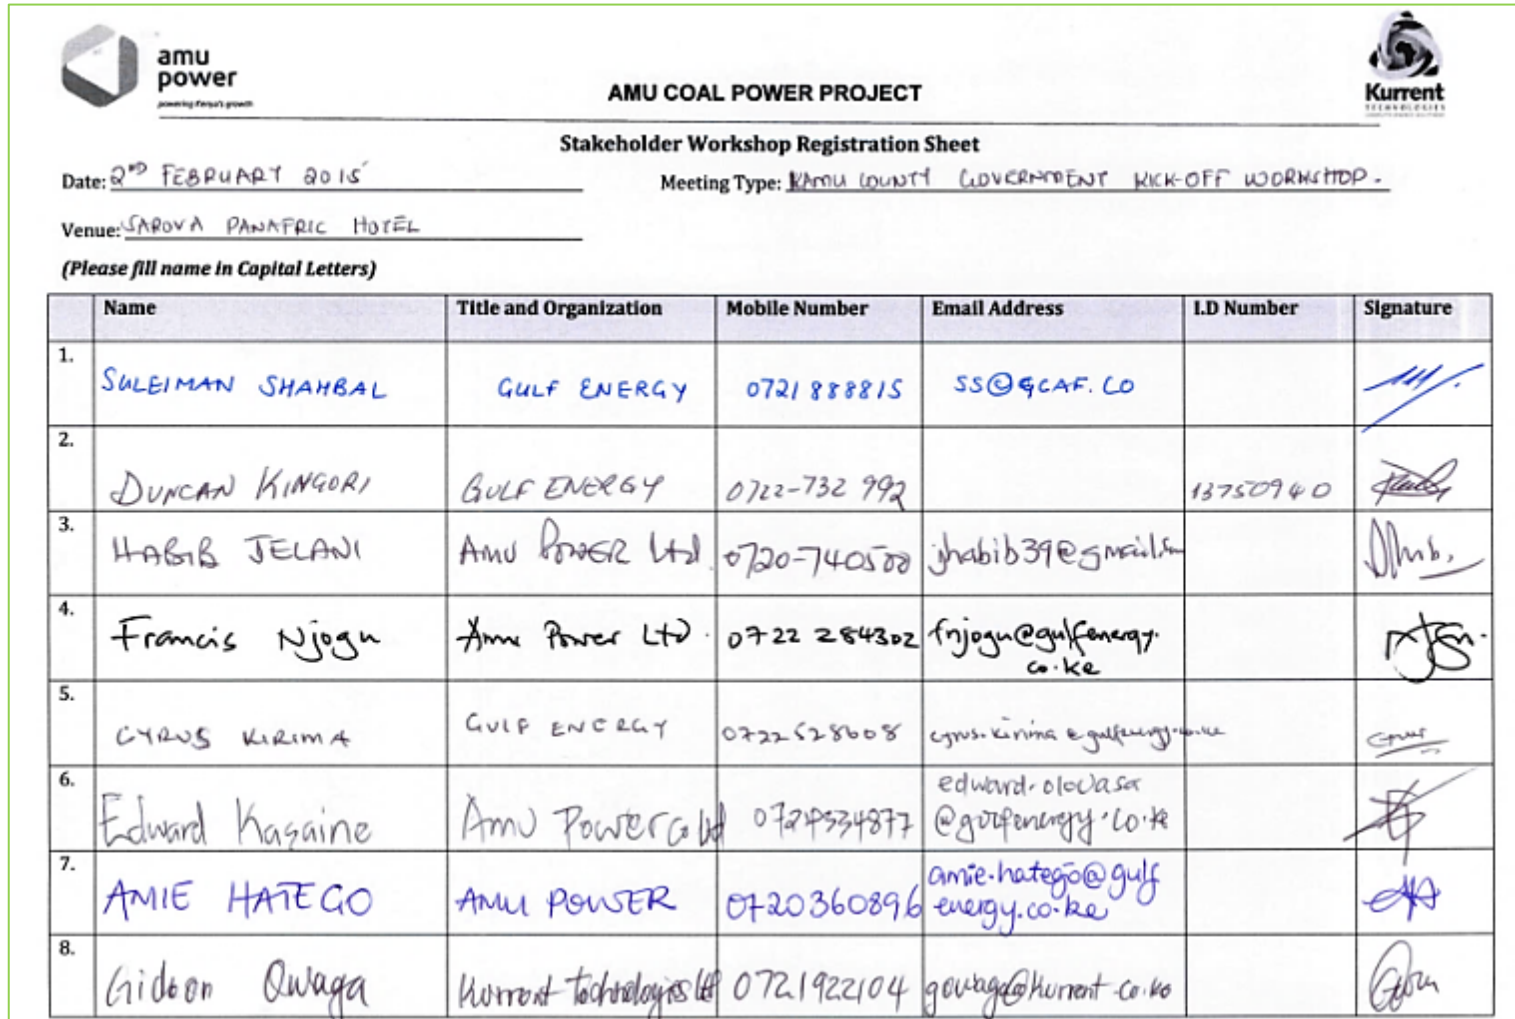 amu
power
powering Kenya's growth
Kurrent
TECHNOLOGIES
AMU COAL POWER PROJECT
Stakeholder Workshop Registration Sheet
Date: 2ND FEBRUARY 2015
Meeting Type: LAMU COUNTY GOVERNMENT KICK-OFF WORKSHOP.
Venue: SAROVA PANAFRIC HOTEL
(Please fill name in Capital Letters)
Name Title and Organization Mobile Number Email Address I.D Number Signature
1. SULEIMAN SHAHBAL GULF ENERGY 0721888815 SS@GCAF.CO
2. DUNCAN KINGORI GULF ENERGY 0722-732 992 13750940
3. HABIB JELANI AMU POWER Ltd. 0720-740500 jhabib39@gmail.
4. Francis Njogu Amu Power Ltd. 0722 284302 fnjogu@gulfenergy.
co.ke
5. CYRUS KIRIMA GULF ENERGY 0722528608 cyrus.kirima@gulfenergy.co.ke
6. Edward Kasaine Amu Power Co Ltd edward.olowasa
@gulfenergy.co.ke
7. AMIE HATEGO AMU POWER 0720360896 amie.hatego@gulf
energy.co.ke
8. Gideon Owaga Kurrent Technologies Ltd 0721922104 gowaga@kurrent.co.ke